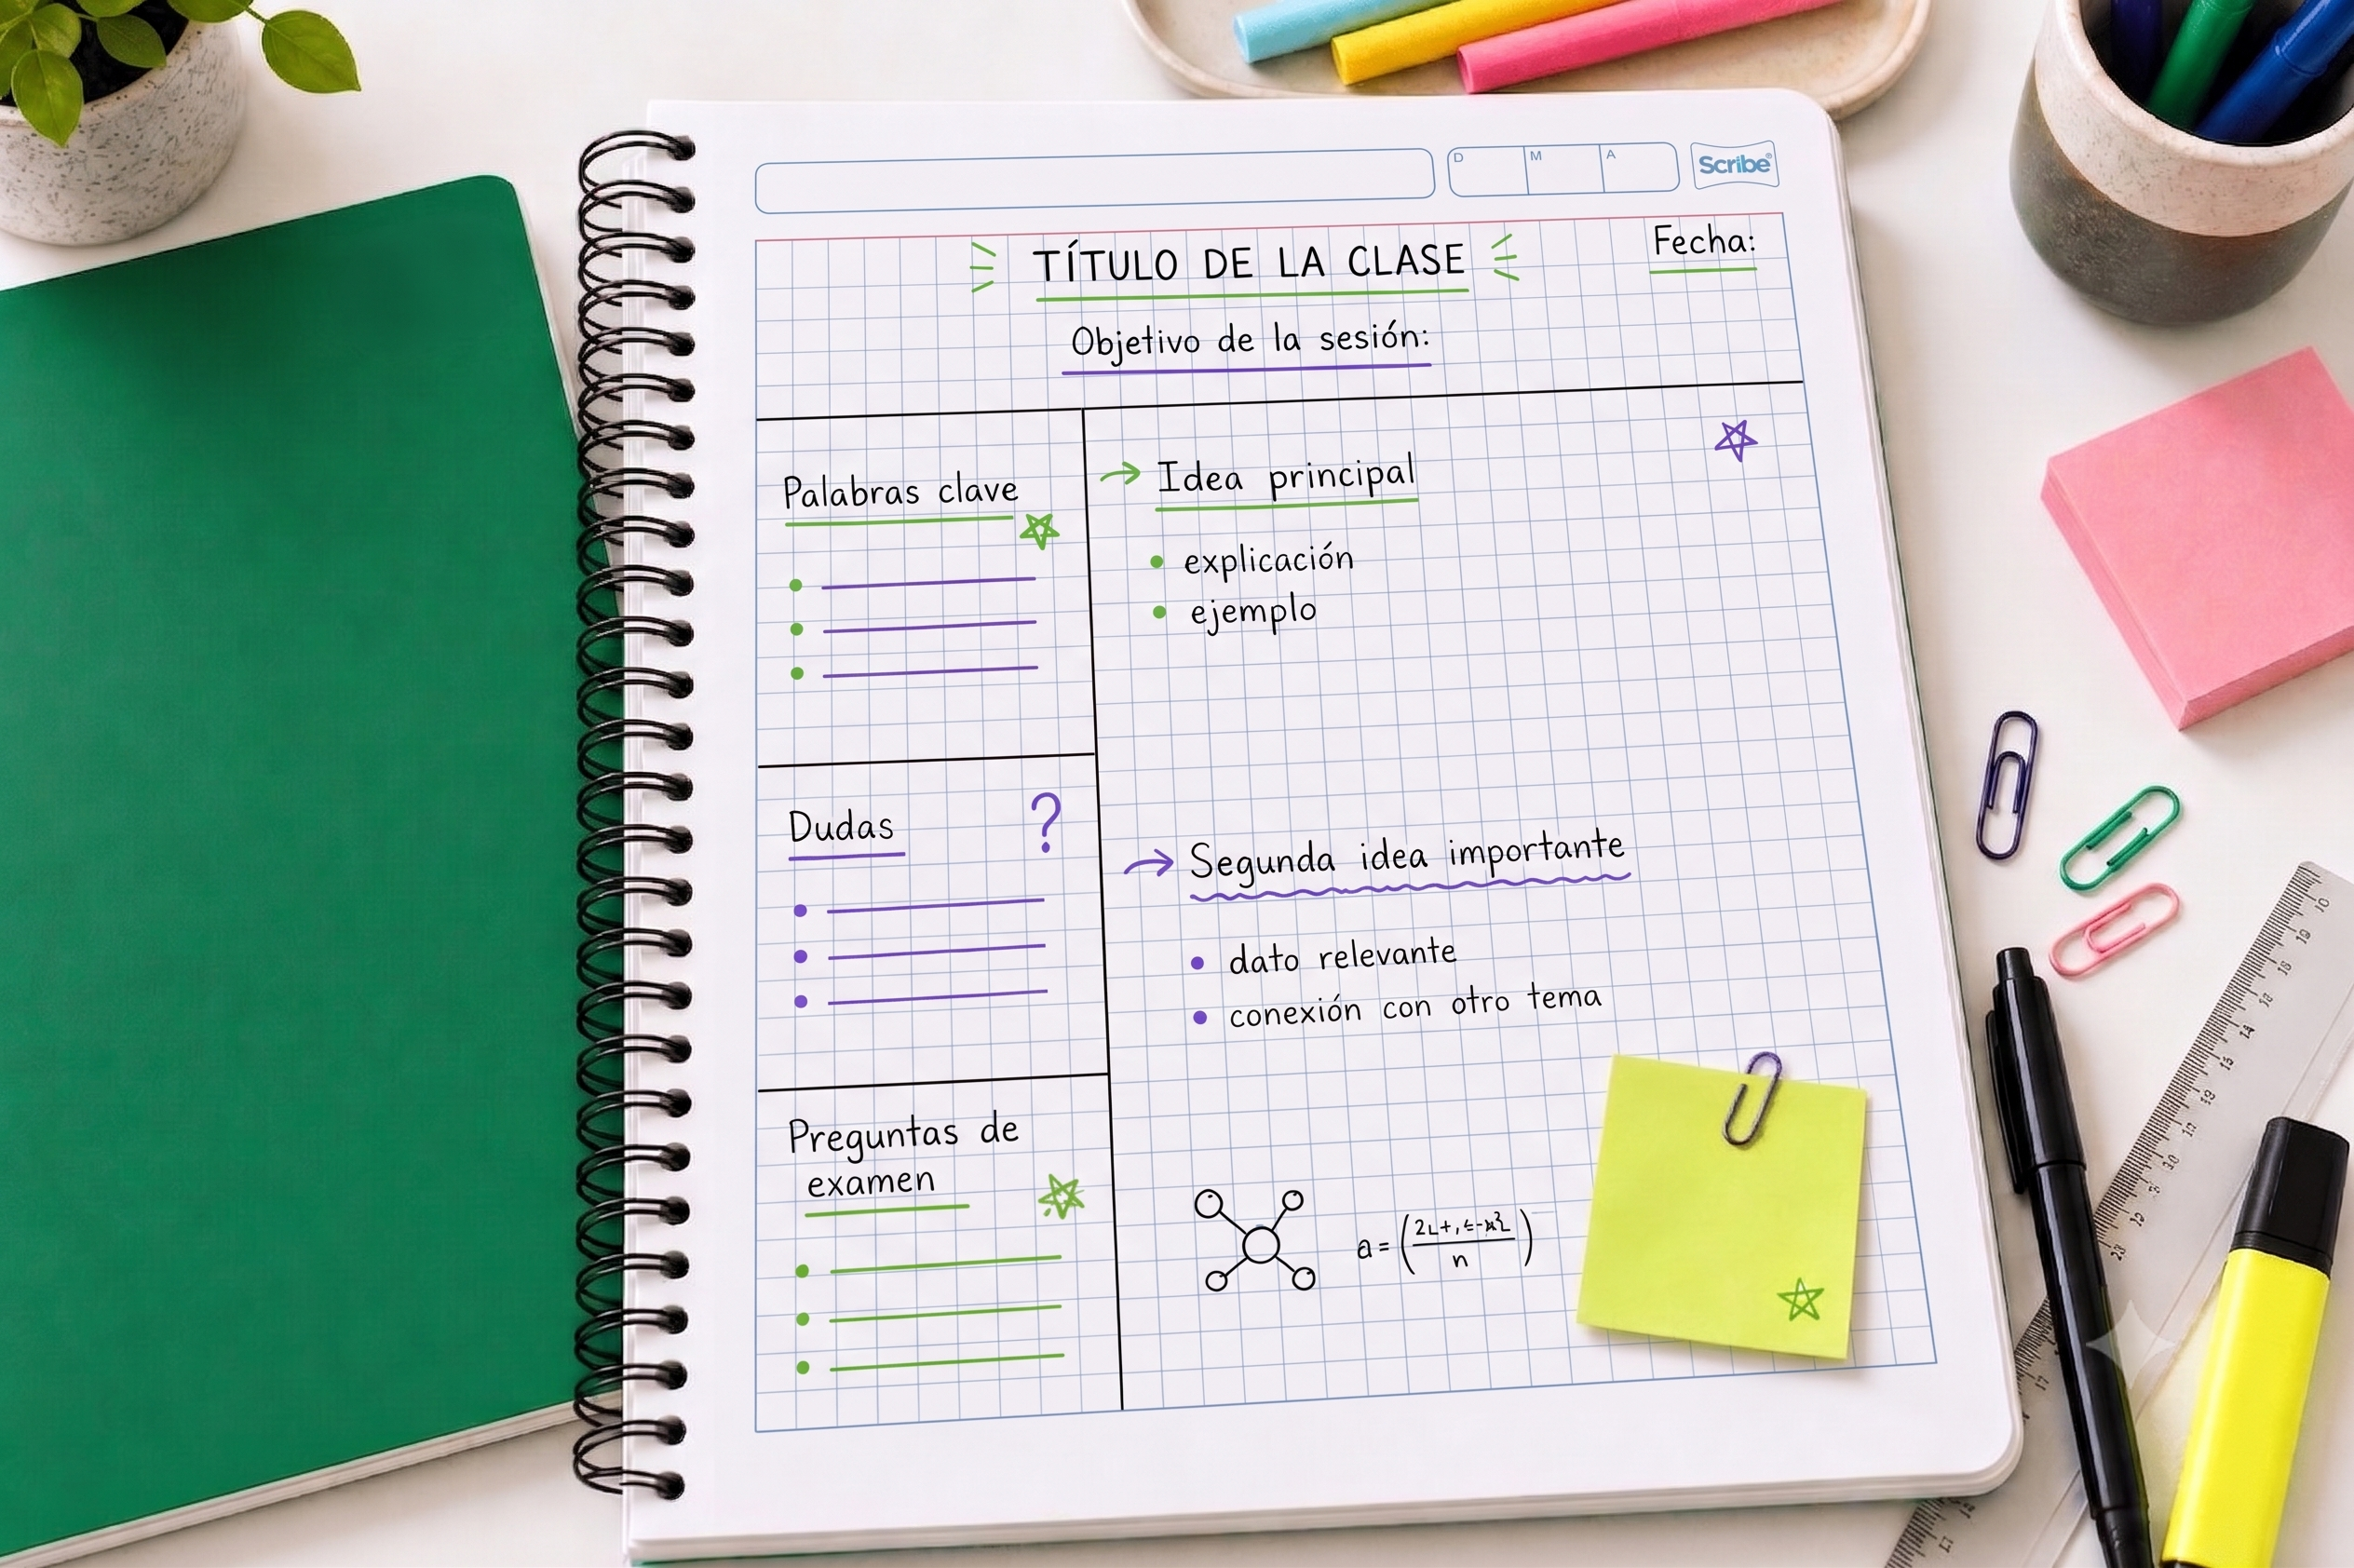 D M A Scribe®
TÍTULO DE LA CLASE
Fecha:
Objetivo de la sesión:
Palabras clave
Dudas ?
Preguntas de
examen
Idea principal
• explicación
• ejemplo
Segunda idea importante
• dato relevante
• conexión con otro tema
a =
n